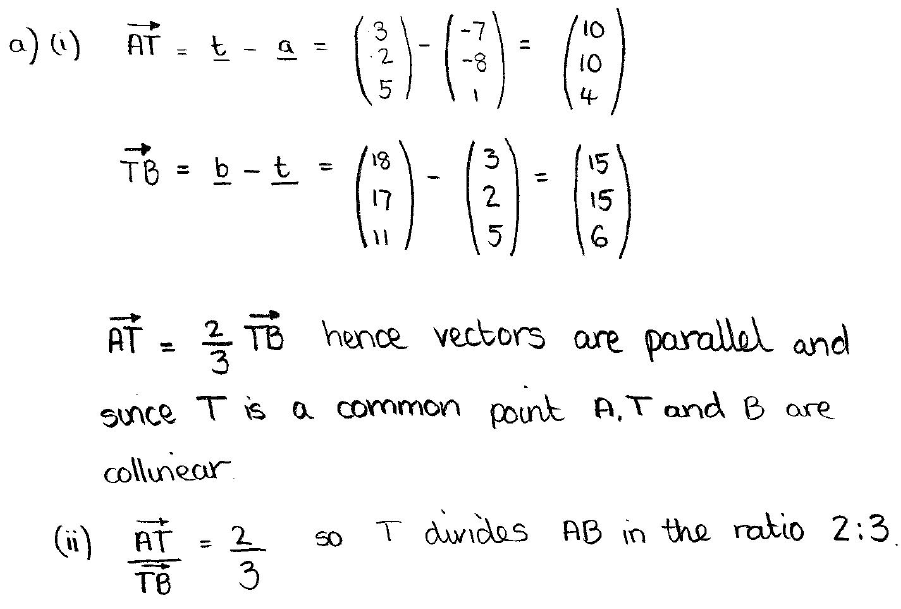 a) (i) →AT = t - a = (3 2 5) - (-7 -8 1) = (10 10 4)
→TB = b - t = (18 17 11) - (3 2 5) = (15 15 6)
→AT = 2/3 →TB hence vectors are parallel and
since T is a common point A, T and B are
collinear.
(ii) →AT/→TB = 2/3 so T divides AB in the ratio 2:3.